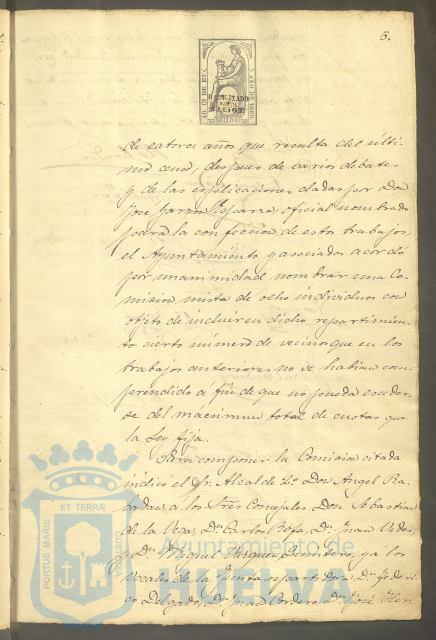 5.
AÑO DE 1869
HABILITADO
POR LA
NACION
de catorce años que resulta del últi-
mo censo, despues de varios debates
y de las esplicaciones dadas por Don
José Garzon Esparza, oficial nombrado
para la confeccion de estos trabajos,
el Ayuntamiento y asociados acordó
por unanimidad nombrar una Co-
mision mista de ocho individuos con
objeto de incluir en dicho repartimien-
to cierto número de vecinos que en los
trabajos anteriores no se habian com-
prendido a fin de que no pueda esceder-
se del maximum total de cuotas que
la Ley fija.
Para componer la Comision citada
indicó el Sr. Alcalde 1º Don Angel
a los tres Concejales Don Sebastian
de la Vega, Dn Carlos Dn Juan
Dn Vazquez y a los
vocales de la Junta repartidora Dn Federi-
co Delgado, Dn Juan Cordero, Dn José
PORTUS MARIS
ET TERRÆ
CUSTODIA
Ayuntamiento de
HUELVA